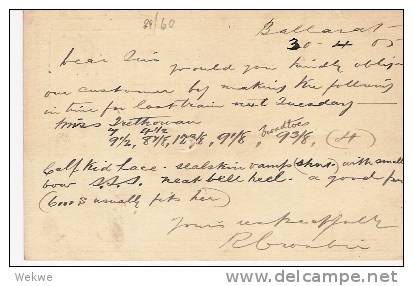 29/60
Ballarat
30-4 05
Dear Sirs would you kindly oblige
our customer by making the following
in time for last train next Tuesday —
Miss Trethowan
7 4½
9½, 8⅞, 12⅜, 9⅛, 9⅜, (4)
Calf Kid Lace. sealskin vamps (short) with small
bow neat bell heel. a good
(6003 usually fits her)
Yours respectfully
R Crombie
Wekwe
www.delcampe.net